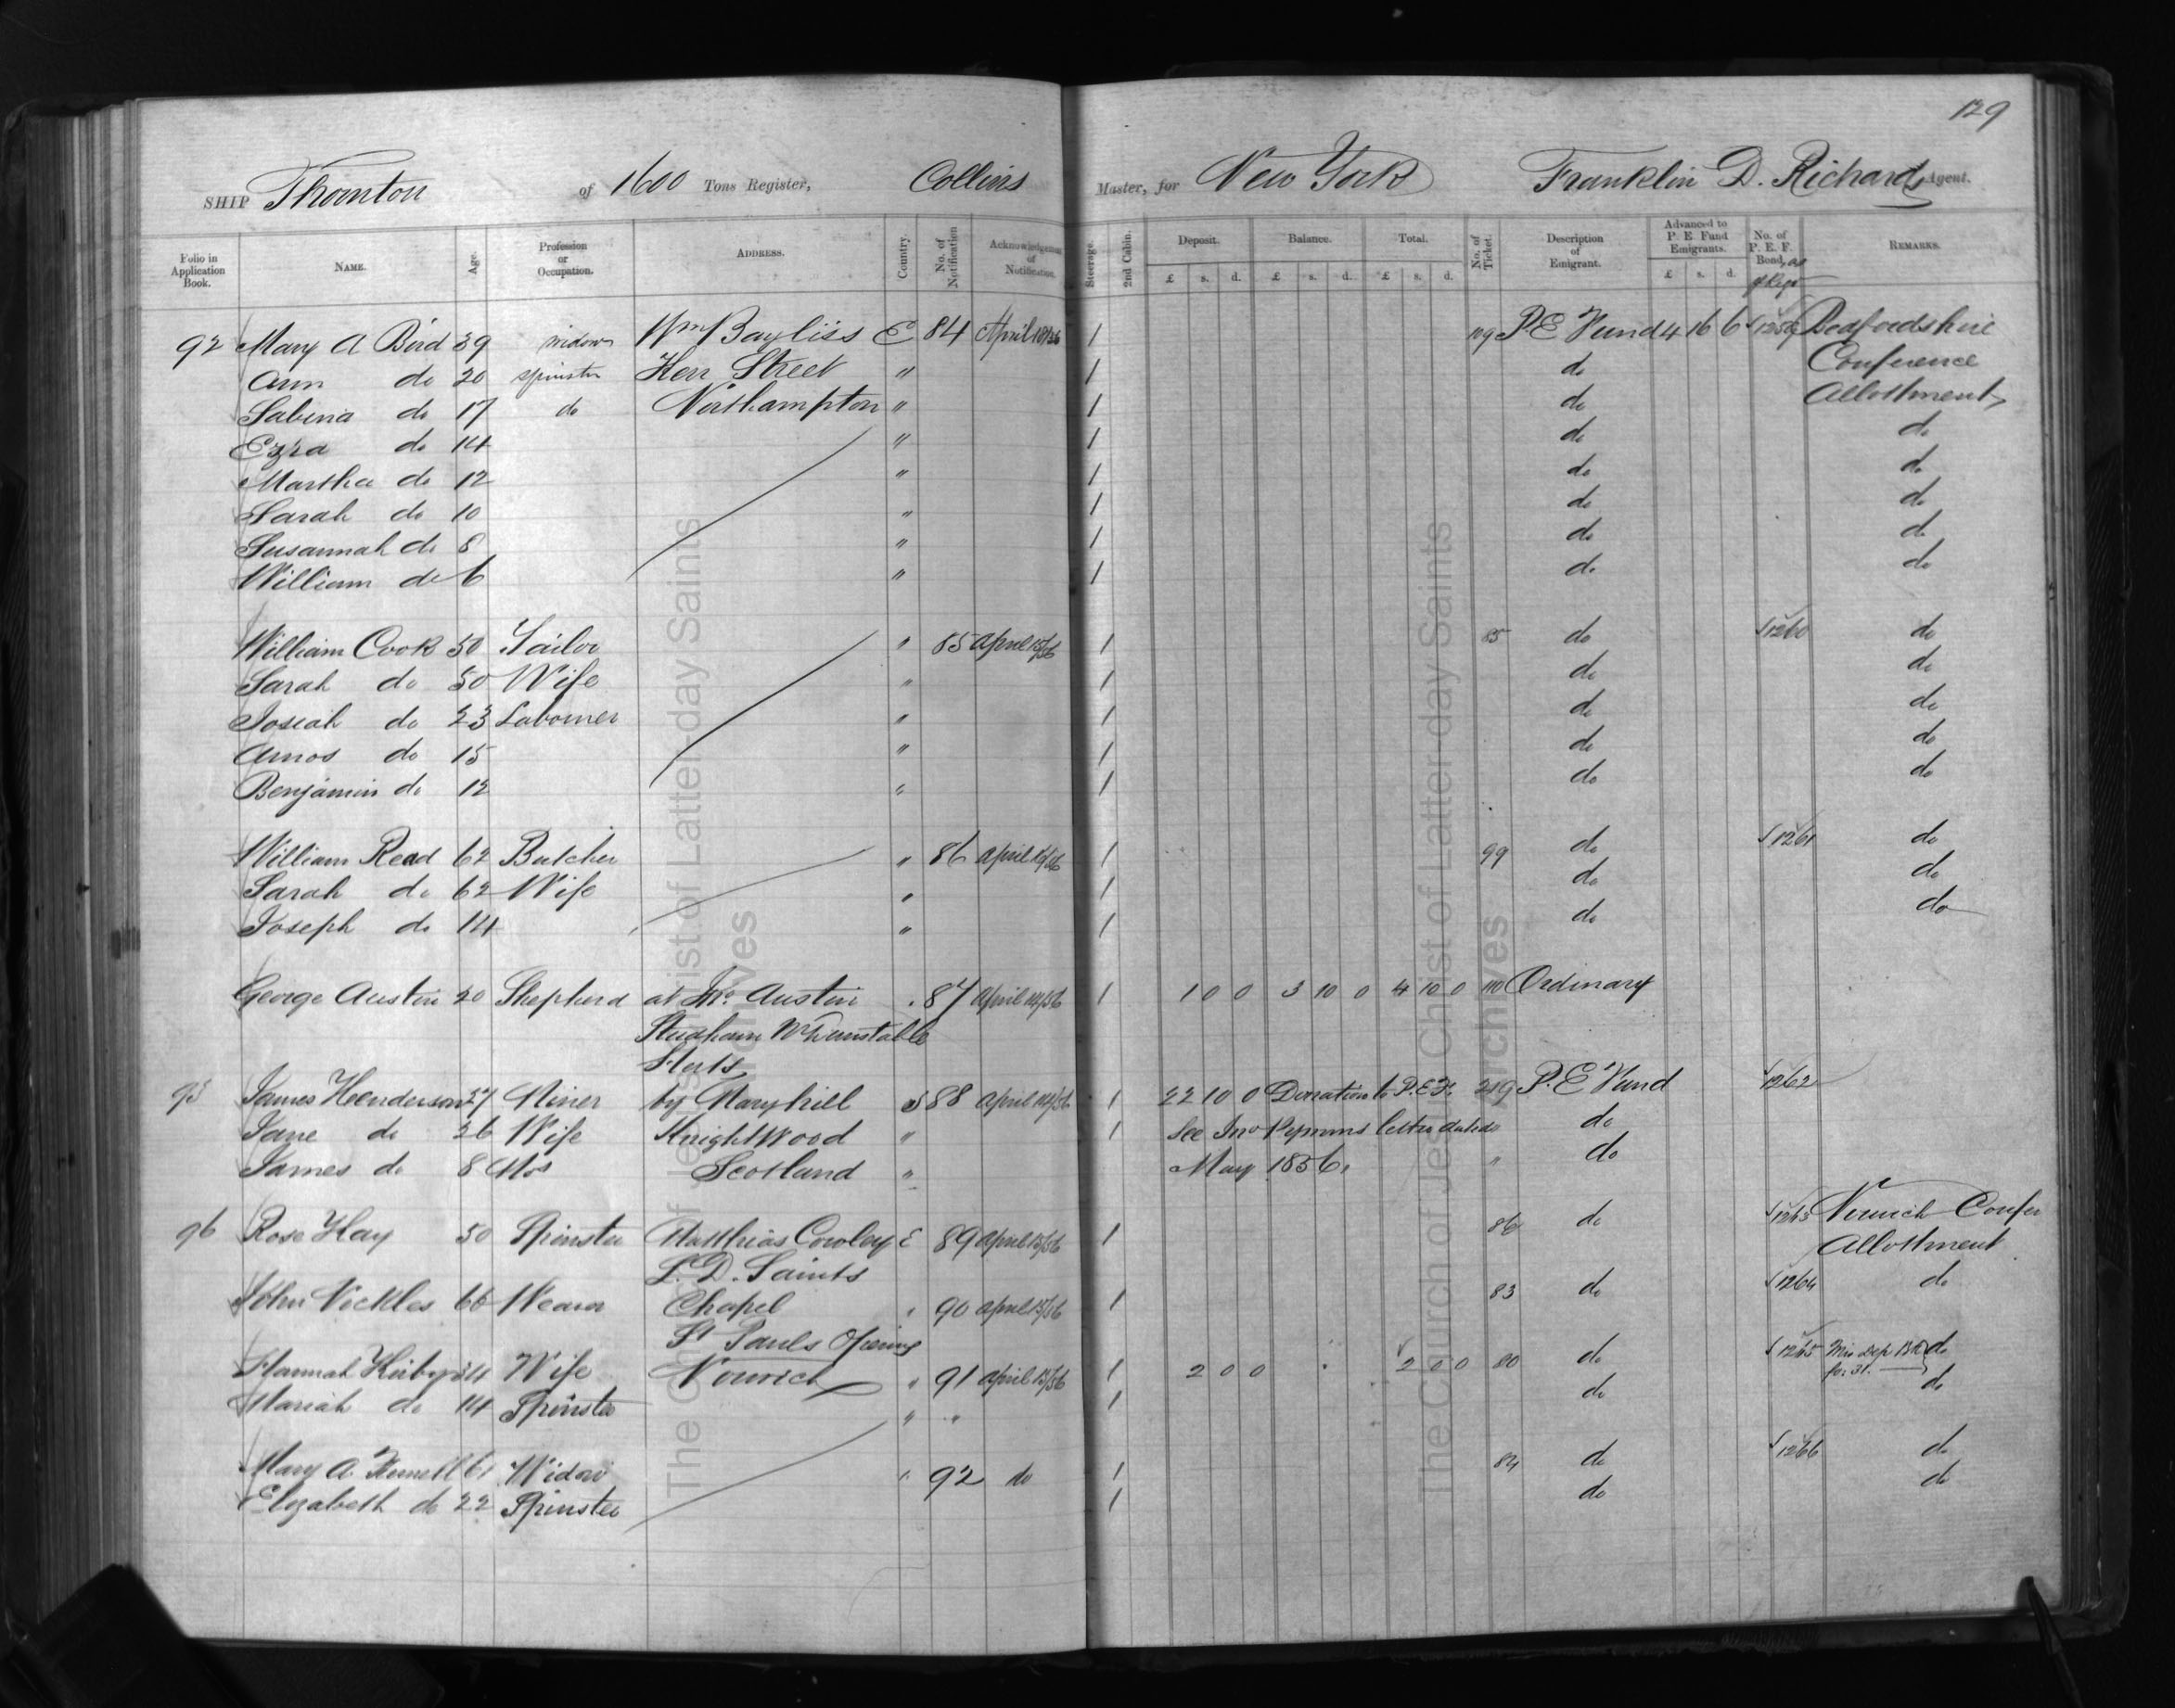 129
SHIP Thornton of 1600 Tons Register, Collins Master, for New York Franklin D. Richards Agent.
Folio in Application Book. NAME. Age. Profession or Occupation. ADDRESS. Country. No. of Notification Acknowledgement of Notification. Steerage. 2nd Cabin. Deposit. £ s. d. Balance. £ s. d. Total. £ s. d. No. of Ticket. Description of Emigrant. Advanced to P. E. Fund Emigrants. £ s. d. No. of P. E. F. Bond, REMARKS.
92 Mary A Bird 39 widow Wm Bayliss E 84 April 1 119 P.E Fund 4 16 6 Bedfordshire
Ann do 20 spinster Street " 1 do Conference
Sabina do 17 do Northampton " 1 do Allottment
Ezra do 14 " 1 do do
Martha do 12 " 1 do do
Sarah do 10 " 1 do do
Susannah do 8 " 1 do do
William do 6 " 1 do do
William Cook 50 Tailor " 85 April 15/56 1 85 do 1260 do
Sarah do 50 Wife " 1 do do
Josiah do 23 Labourer " 1 do do
Amos do 15 " 1 do do
Benjamin do 12 " 1 do do
William Read 62 Butcher " 86 April 1 99 do 1261 do
Sarah do 62 Wife " 1 do do
Joseph do 14 " 1 do do
George Austin 20 Shepherd at Jno Austin " 87 April 14/56 1 1 0 0 3 10 0 4 10 0 110 Ordinary
Studham Nr Dunstable
Herts
James Henderson 27 Miner by Maryhill S 88 April 14/56 1 22 10 0 Donation to P.E.F. 219 P.E Fund 1262
Jane do 26 Wife Knightwood " 1 See Jno letter dated do
James do 8 Mos Scotland " May 1856. " do
96 Rose Hay 50 Spinster Matthias Cowley E 89 April 15/56 1 86 do 1263 Norwich Confer
L. D. Saints Allottment
John Nickles 66 Weaver Chapel " 90 April 15/56 1 83 do 1264 do
St Pauls Opening
Hannah Kirby 34 Wife Norwich " 91 April 15/56 1 2 0 0 2 0 0 80 do 1265 do
Mariah do 14 Spinster " " 1 do do
Mary A. 61 Widow " 92 do 1 84 do 1266 do
Elizabeth do 22 Spinster 1 do do
The Church of Jesus Christ of Latter-day Saints
Archives
The Church of Jesus Christ of Latter-day Saints
Archives